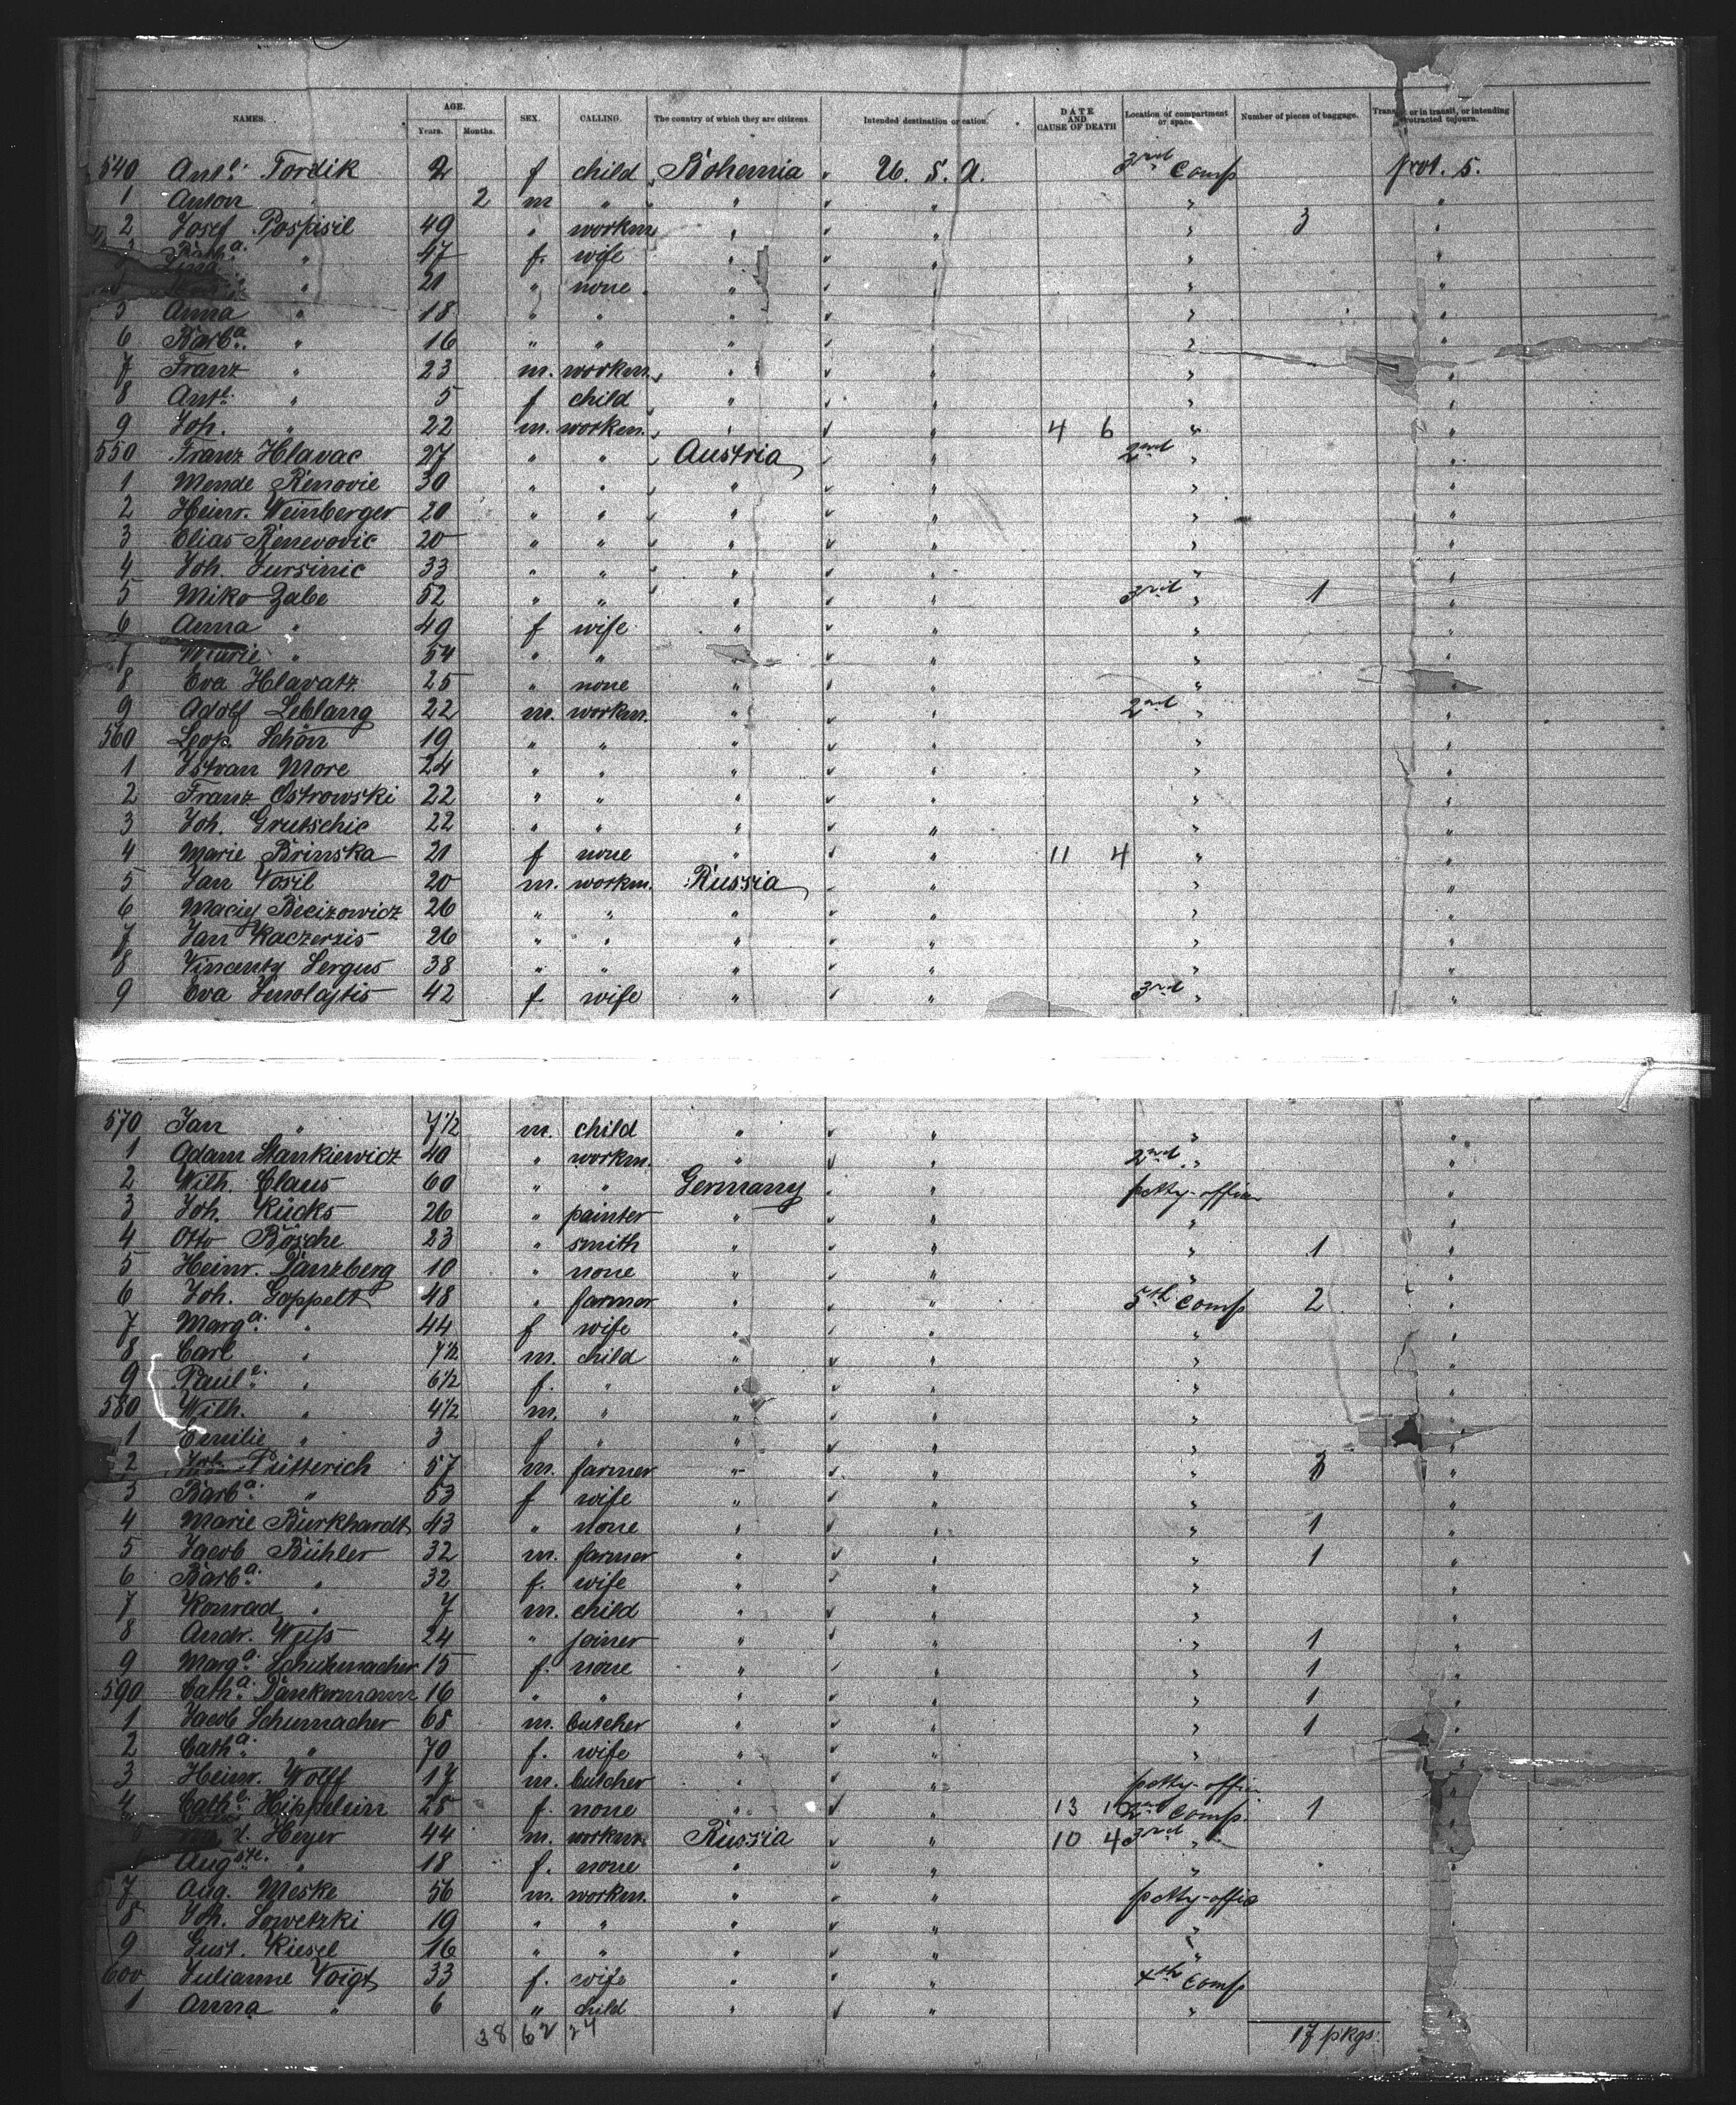 NAMES. AGE. SEX. CALLING. The country of which they are citizens. Intended destination or location. DATE AND CAUSE OF DEATH Location of compartment or space. Number of pieces of baggage. or in transit, or intending protracted sojourn.
Years. Months.
540 Ant.e Tordik 2 f child Bohemia U. S. A. 3rd Comp prot. S.
1 Anton " 2 m " " " " "
2 Josef Pospisil 49 " workm " " " 3 "
" 47 f. wife " " " "
" 21 " none " " " "
5 Anna " 18 " " " " " "
6 Barb.a " 16 " " " " " "
7 Franz " 23 m. workm. " " " "
8 Ant.e " 5 f child " " " "
9 Joh. " 22 m. workm. " " 4 6 " "
550 Franz Hlavac 27 " " Austria " 2nd " "
1 Mende Renovie 30 " " " " " "
2 Heinr. Weinberger 20 " " " " " "
3 Elias Renevovic 20 " " " " " "
4 Joh. Jursinic 33 " " " " " "
5 Miko Zabe 52 " " " " 3rd " 1 "
6 Anna " 49 f wife " " " "
7 Marie " 54 " " " " " "
8 Eva Hlavatz 25 " none " " " "
9 Adolf Leblang 22 m. workm. " " 2nd " "
560 Leop. Schön 19 " " " " " "
1 Istvan More 24 " " " " " "
2 Franz Ostrowski 22 " " " " " "
3 Joh. Grutschic 22 " " " " " "
4 Marie Brinska 21 f none " " 11 4 " "
5 Jan Vosil 20 m. workm. Russia " " "
6 Maciej Becizowicz 26 " " " " " "
7 Jan Kaczerzis 26 " " " " " "
8 Vincenty Sergus 38 " " " " " "
9 Eva 42 f. wife " " 3rd " "
570 Jan " 7 1/2 m. child " " " "
1 Adam Stankiewicz 40 " workm. " " 2nd " "
2 Wilh. Claus 60 " " Germany " petty-office "
3 Joh. Rücks 26 " painter " " " "
4 Otto Bösche 23 " smith " " " 1 "
5 Heinr. Danzberg 10 " none " " " "
6 Joh. Goppelt 48 " farmer " " 5th Comp 2 "
7 Marg.a " 44 f wife " " " "
8 Carl " 7 1/2 m. child " " " "
9 Paul.e " 6 1/2 f. " " " " "
580 Wilh. " 4 1/2 m. " " " " "
1 Emilie " 3 f " " " " "
2 Pütterich 57 m. farmer " " " "
3 Barb.a " 53 f wife " " " "
4 Marie Burkhardt 43 " none " " " 1 "
5 Jacob Bühler 32 m. farmer " " " 1 "
6 Barb.a " 32 f. wife " " " "
7 Konrad " 7 m. child " " " "
8 Andr. Weiss 24 " joiner " " " 1 "
9 Marg.a Schuhmacher 15 f. none " " " 1 "
590 Cath.a Dankermann 16 " " " " " 1 "
1 Jacob Schumacher 68 m. butcher " " " 1 "
2 Cath.a " 70 f. wife " " " "
3 Heinr. Wolff 17 m. butcher " " petty-office "
4 Cath.e Hippelein 25 f. none " " 13 2nd Comp. 1 "
Heyer 44 m. workm. Russia " 10 4 3rd " "
Aug.ste " 18 f. none " " " "
7 Aug. Meske 56 m. workm. " " petty-office "
8 Joh. Lowetzki 19 " " " " " "
9 Gust. Kiesel 16 " " " " " "
600 Julianne Voigt 33 f. wife " " 4th Comp "
1 Anna " 6 " child " " " "
38 62 24 17 pkgs.